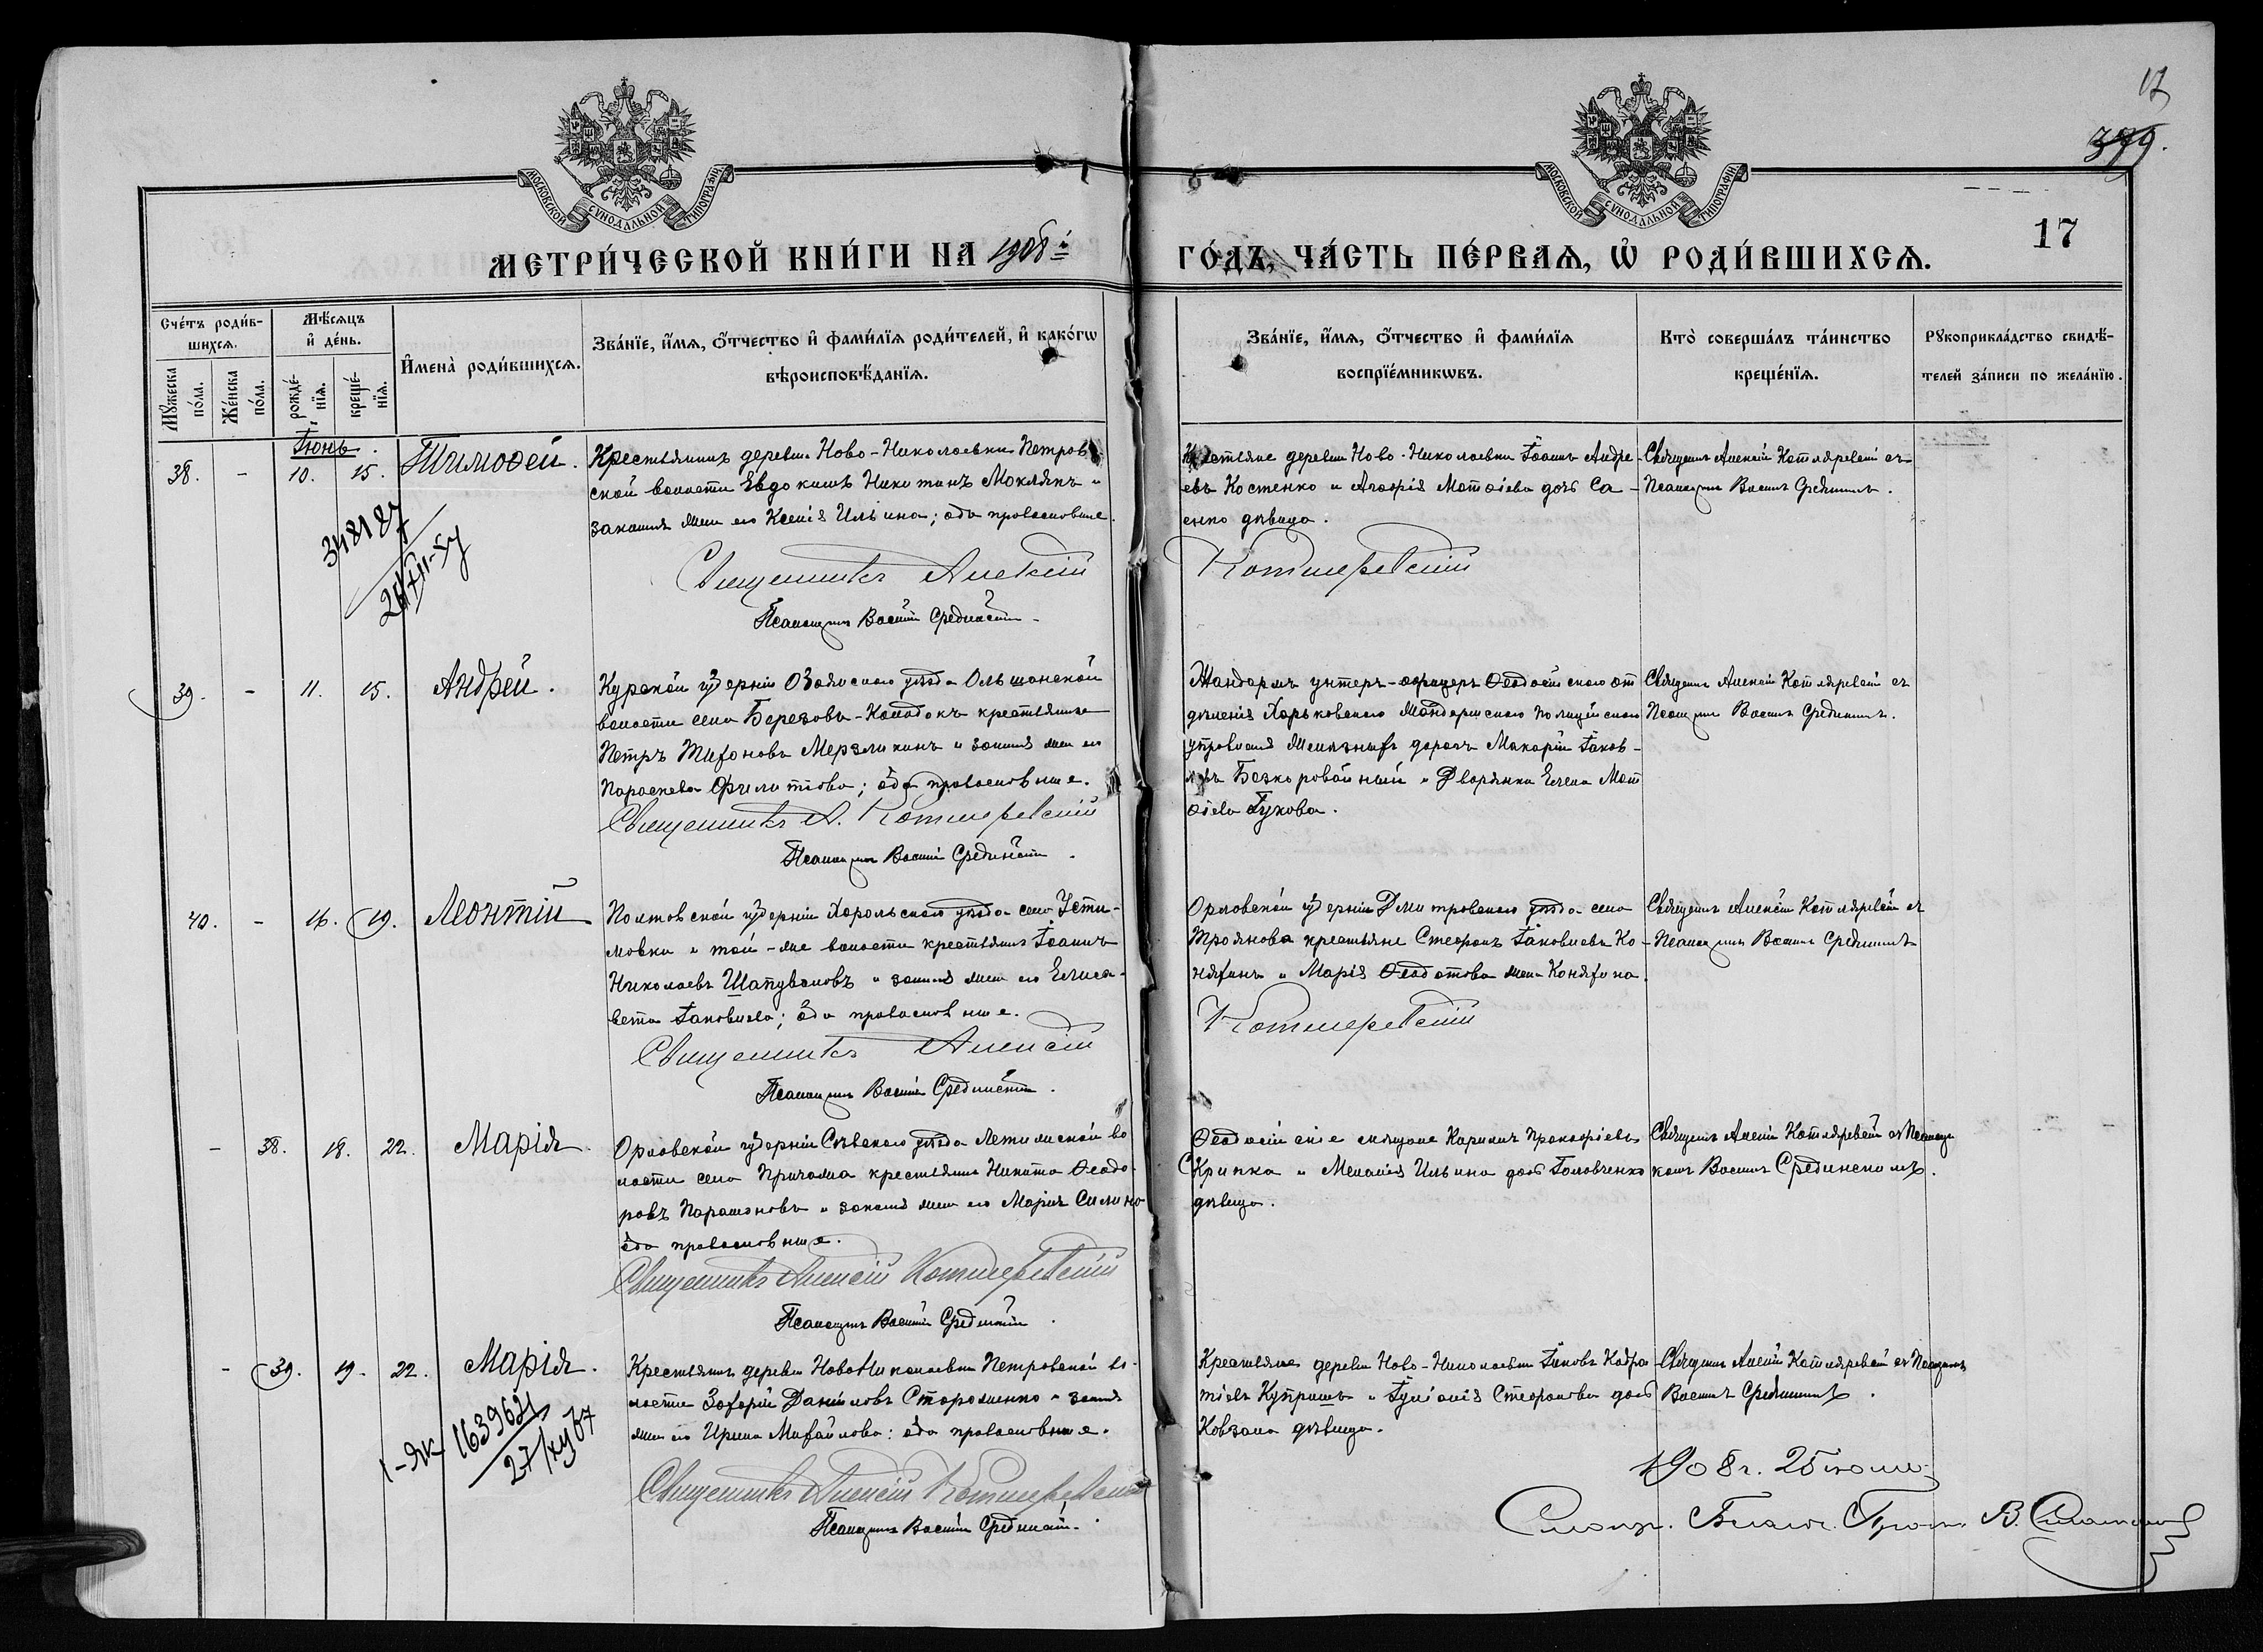 17
379.
МОСКОВСКОЙ СѴНОДАЛЬНОЙ ТИПОГРАФІИ
МОСКОВСКОЙ СѴНОДАЛЬНОЙ ТИПОГРАФІИ
17
МЕТРИ́ЧЕСКОЙ КНИ́ГИ НА 1908й
ГО́ДЪ, ЧА́СТЬ ПЕ́РВАѦ, Ѡ҆ РОДИ́ВШИХСѦ.
Сче́тъ роди́в-
шихсѧ.
Мѣ́сѧцъ
и҆ де́нь.
Мꙋ́жеска
по́ла.
Же́нска
по́ла.
рожде́-
нїѧ.
креще́-
нїѧ.
И҆мена̀ роди́вшихсѧ.
Зва́нїе, и҆́мѧ, ѻ҆́тчество и҆ фами́лїѧ роди́телей, и҆ како́гѡ
вѣроисповѣ́данїѧ.
Зва́нїе, и҆́мѧ, ѻ҆́тчество и҆ фами́лїѧ
воспрїе́мникѡвъ.
Кто̀ соверша́лъ та́инство
креще́нїѧ.
Рꙋкоприкла́дство свидѣ́-
телей за́писи по жела́нїю.
Іюнь.
38. - 10. 15. Тимоѳей.
Крестьянинъ деревни Ново-Николаевки Петров
ской волости Евдокимъ Никитинъ Моклякъ и
законная жена его Ксенія Ильина; оба православные.
Священникъ Алексій
Псаломщикъ Василій Срединскій
Крестьяне деревни Ново-Николаевки Іоаннъ Андре-
евъ Костенко и Агафія Матѳіева дочь Са-
енко дѣвица.
Котляревскій
Священникъ Алексій Котляревскій съ
Псаломщикомъ Василіемъ Срединскимъ.
348187
39. - 11. 15. Андрей.
Курской губерніи Обоянскаго уѣзда Ольшанской
волости села Березова-Колодокъ крестьянинъ
Петръ Тихоновъ Мерзликинъ и законная жена его
Параскева Филиппова; оба православные.
Священникъ А. Котляревскій
Псаломщикъ Василій Срединскій.
Жандармъ унтеръ-офицеръ Ѳеодосійскаго от
дѣленія Харьковскаго Жандармскаго полицейскаго
управленія желѣзныхъ дорогъ Макарій Іаков-
левъ Безкоровайный и Дворянка Елена Мат
ѳіева Гукова.
Священникъ Алексій Котляревскій съ
Псаломщикомъ Василіемъ Срединскимъ.
40. - 16. 19. Леонтій
Полтовской губерніи Хорольскаго уѣзда села Усти-
мовки и той-же волости крестьянинъ Іоаннъ
Николаевъ Шаповаловъ и законная жена его Елиса-
вета Іаковлева; оба православные.
Священникъ Алексій
Псаломщикъ Василій Срединскій.
Орловской губерніи Дмитровскаго уѣзда села
Троянова крестьяне Стефанъ Іаковлевъ Ко-
няхинъ и Марія Ѳеодотова жена Коняхина.
Котляревскій
Священникъ Алексій Котляревскій съ
Псаломщикомъ Василіемъ Срединскимъ
- 38. 18. 22. Марія.
Орловской губерніи Сѣвскаго уѣзда во
лости села крестьянинъ Никита Ѳеодо-
ровъ Парамоновъ и законная жена его Марія Силина
оба православные.
Священникъ Алексій Котляревскій
Псаломщикъ Василій Срединскій.
Ѳеодосійскіе мѣщане Кириллъ Прокофіевъ
Скрипка и Меланія Ильина дочь Головченко
дѣвица.
Священникъ Алексій Котляревскій съ Псаломщи
комъ Василіемъ Срединскимъ.
- 39. 19. 22. Марія.
Крестьянинъ деревни Ново-Николаевки Петровской во-
лости Захарій Даніиловъ Стороженко и законная
жена его Ирина Михайлова: оба православные.
Священникъ Алексій Котляревскій
Псаломщикъ Василій Срединскій.
Крестьяне деревни Ново-Николаевки Іаковъ Кодра-
тіевъ Купришъ и Іуліанія Стефанова дочь
Ковзана дѣвица.
Священникъ Алексій Котляревскій съ Псаломщикомъ
Василіемъ Срединскимъ.
1639621
1908 г. 25 іюля